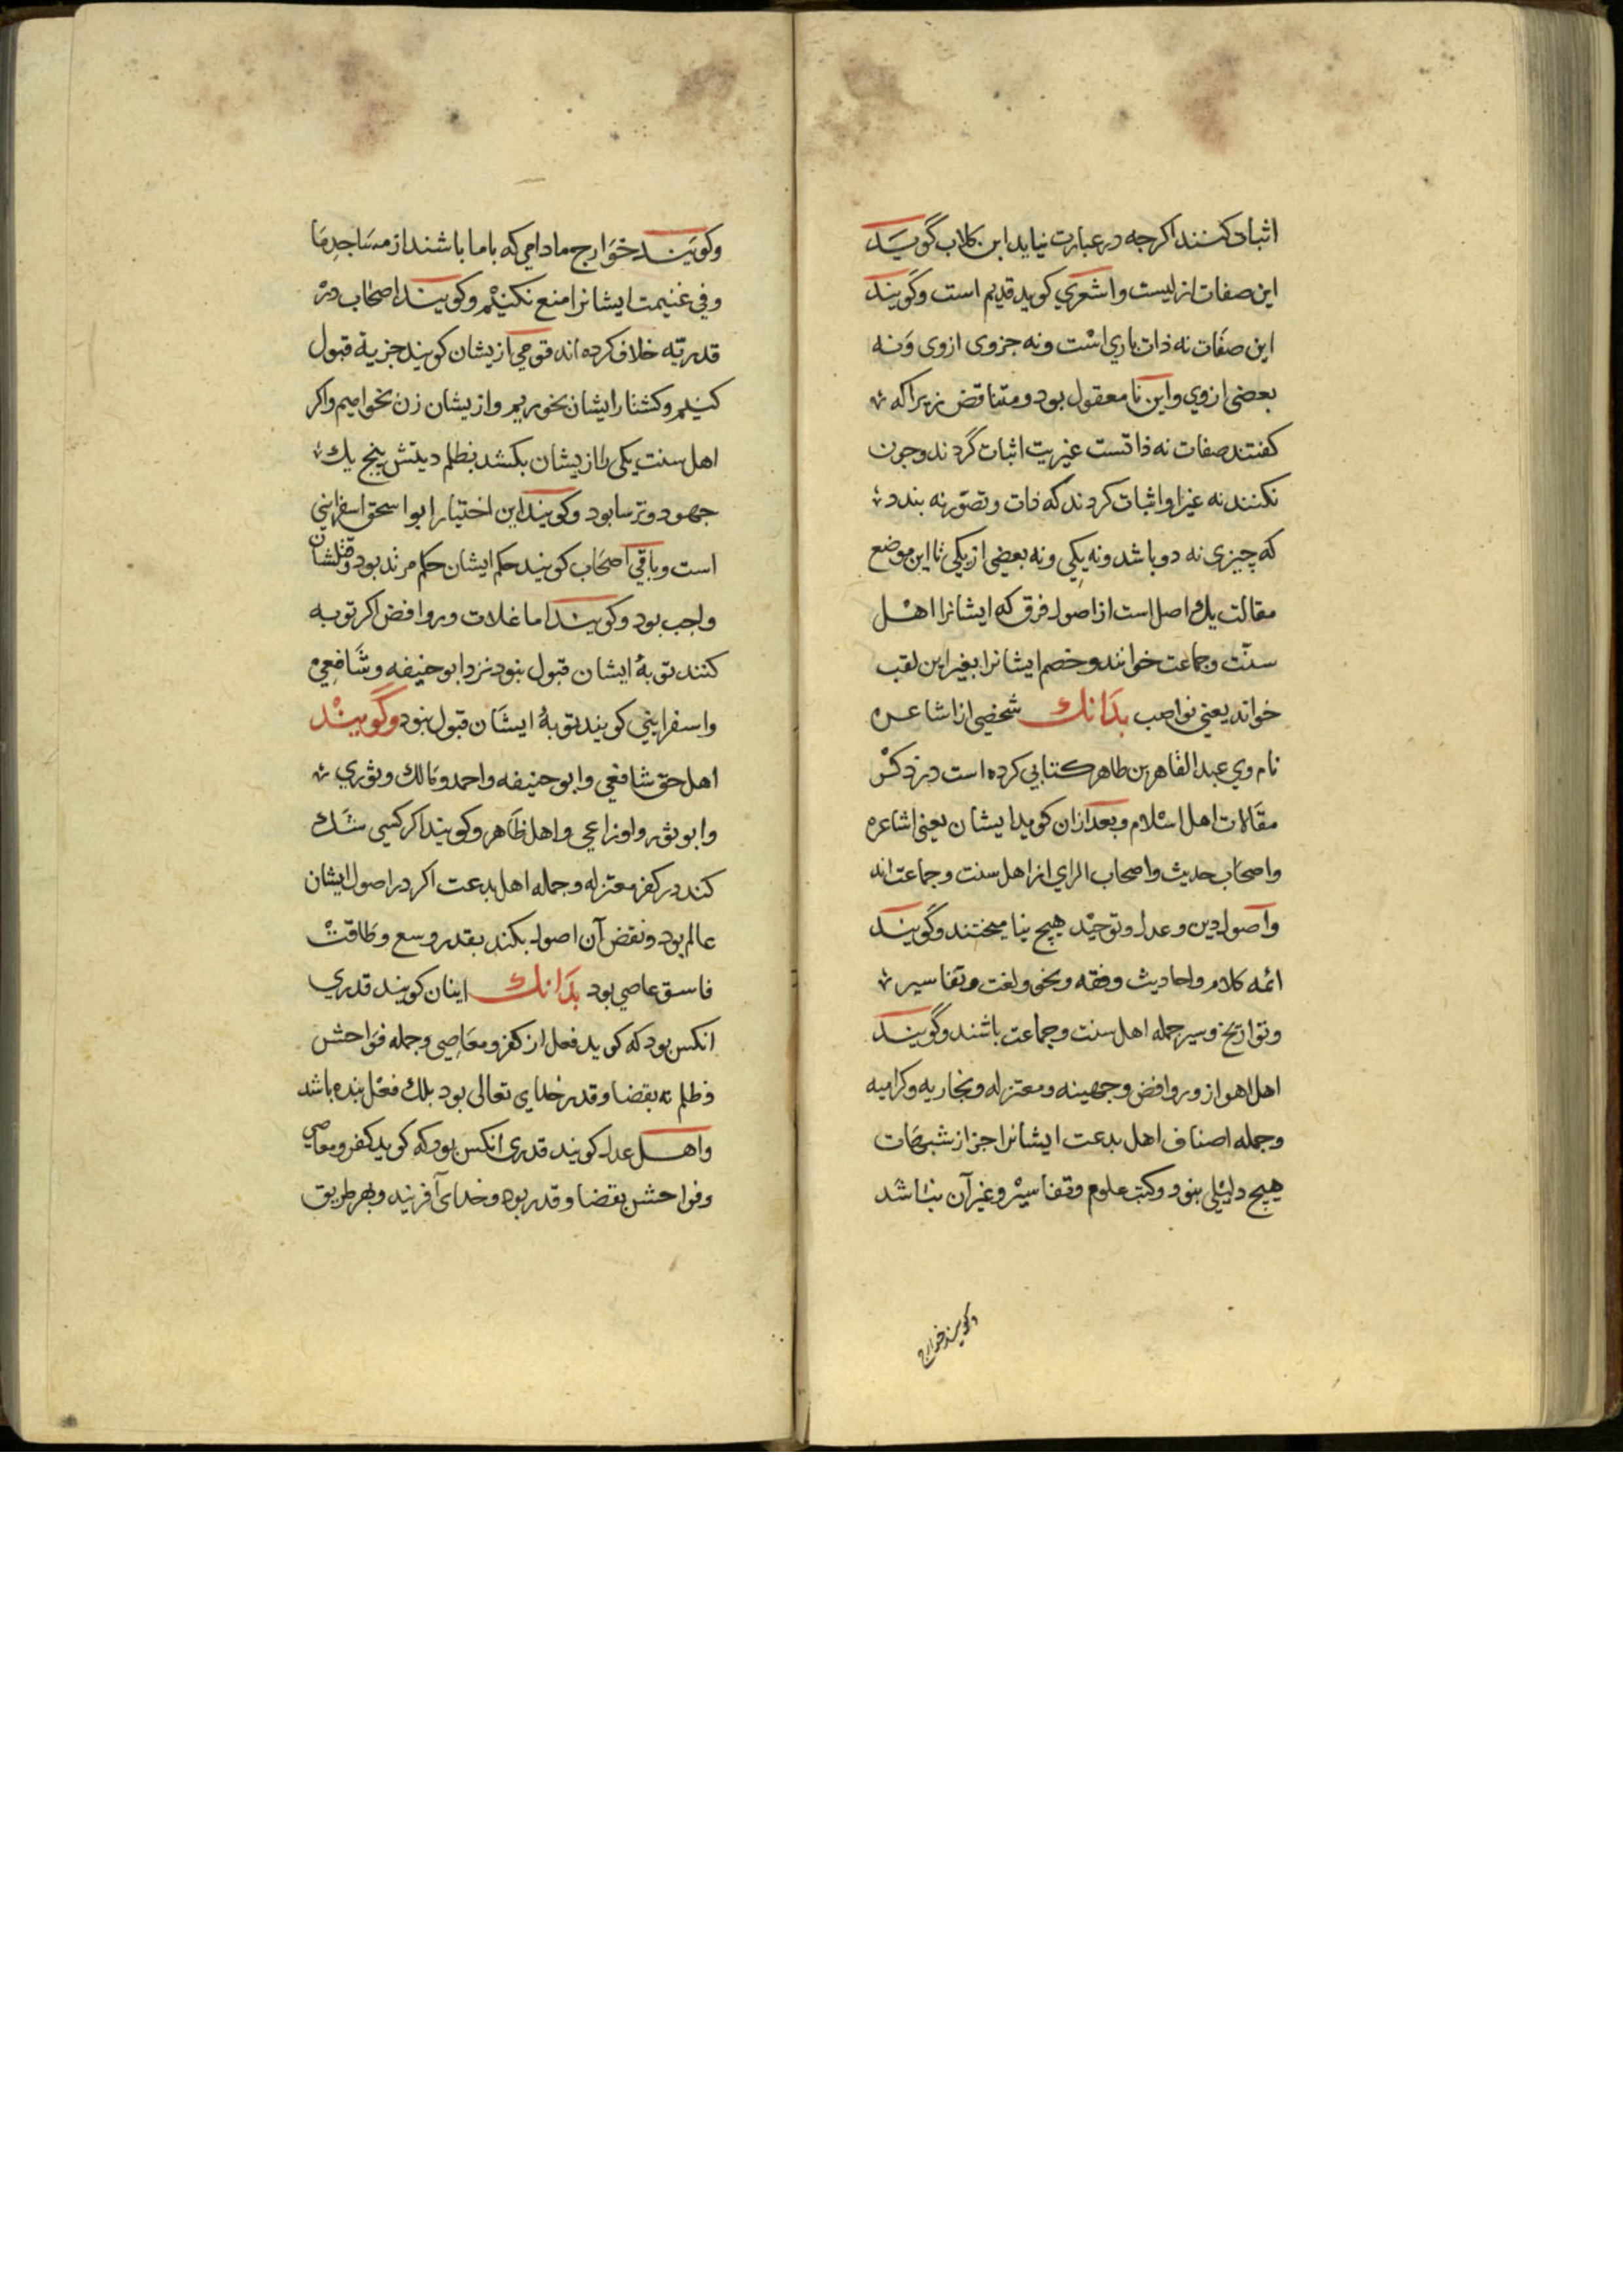 اثبات کنند اکرجه در عبارت نیاید ابن کلاب گویند
این صفات ازلیست واشعری کوید قدیم است وگویند
این صفات نه ذات باری است ونه جزوی ازوی ونه
بعضی ازوی واین نامعقول بود ومتناقض زیراکه
کفتند صفات نه ذاتست غیریت اثبات گردند وجون
نکنند نه غیر او اثبات کردند که ذات وتصور نه بندد
که چیزی نه دو باشد ونه یکی ونه بعضی از یکی تا این موضع
مقالت یك اصل است از اصول فرق که ایشانرا اهل
سنت وجماعت خوانند وخصم ایشانرا بغیر این لقب
خواند یعنی نواصب بدانك شخصی از اشاعره
نام وی عبد القاهر بن طاهر کتابی کرده است در ذکر
مقالات اهل اسلام وبعد ازان کوید ایشان یعنی اشاعره
واصحاب حدیث واصحاب الرای از اهل سنت وجماعت اند
واصول دین وعدل وتوحید هیچ نیامیختند وگویند
ائمه کلام واحادیث وفقه ونحو ولغت وتفاسیر
وتواریخ وسیر جمله اهل سنت وجماعت باشند وگویند
اهل اهوا از وروافض وجهینه ومعتزله ونجاریه وکرامیه
وجمله اصناف اهل بدعت ایشانرا جز از شبهات
هیچ دلیلی نبود وکتب علوم وتفاسیر وغیر آن نباشد
وکویند خوارج
وکویند خوارج مادامی که باما باشند از مساجد ما
وفی غنیمت ایشانرا منع نکنیم وکویند اصحاب در
قدریه خلاف کرده اند قومی ازیشان کویند جزیة قبول
کنیم وکشتار ایشان بخوریم وازیشان زن بخواهیم واکر
اهل سنت یکی را ازیشان بکشد بظلم دیتش پنج یك
جهود وترسا بود وکویند این اختیار ابو اسحق اسفراینی
است وباقی اصحاب کویند حکم ایشان حکم مرتد بود وقتلشان
واجب بود وکویند اما غلات وروافض اکر توبه
کنند توبهٔ ایشان قبول نبود نزد ابو حنیفه وشافعی
واسفراینی کویند توبهٔ ایشان قبول نبود وگویند
اهل حق شافعی وابو حنیفه واحمد ومالك وثوری
وابو ثور واوزاعی واهل ظاهر وکویند اکر کسی شك
کند در کفر معتزله وجمله اهل بدعت اکر در اصول ایشان
عالم بود ونقض آن اصول بکند بقدر وسع وطاقت
فاسق عاصی بود بدانك اینان کویند قدری
انکس بود که کوید فعل از کفر ومعاصی وجمله فواحش
وظلم نه بقضا وقدر خدای تعالی بود بلك فعل بنده باشد
واهل عدل کویند قدری انکس بود که کوید کفر ومعاصی
وفواحش بقضا وقدر بود وخدای آفریند وبهر طریق